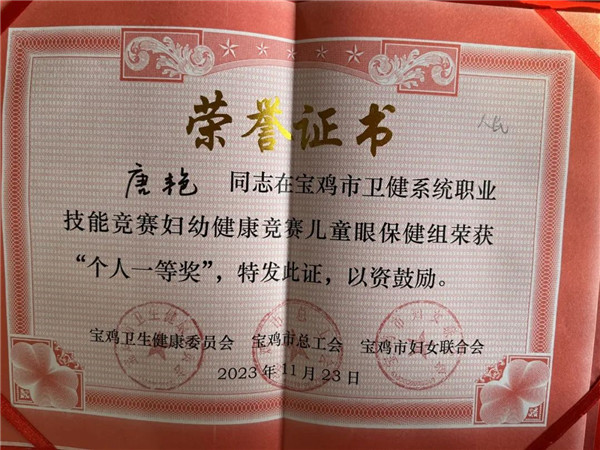 荣誉证书
人民
唐艳 同志在宝鸡市卫健系统职业
技能竞赛妇幼健康竞赛儿童眼保健组荣获
“个人一等奖”，特发此证，以资鼓励。
宝鸡卫生健康委员会 宝鸡市总工会 宝鸡市妇女联合会
2023年11月23日